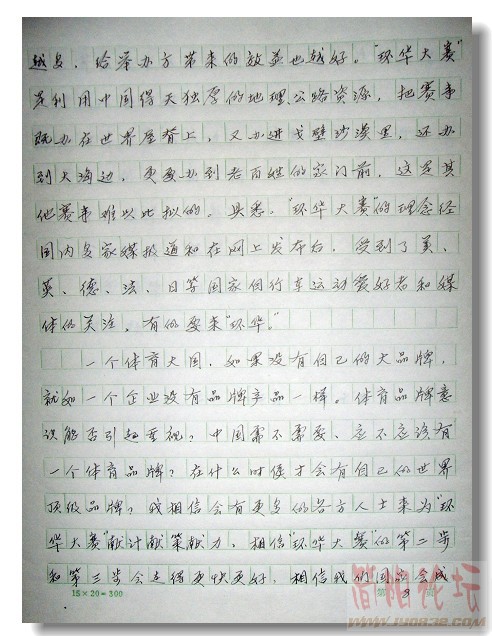 越多，给举办方带来的效益也越好。“环华大赛”
是利用中国得天独厚的地理、公路资源，把赛事
既办在世界屋脊上，又办进戈壁沙漠里，还办
到大海边，更要办到老百姓的家门前，这是其
他赛事难以比拟的。具悉，“环华大赛”的理念经
国内多家媒报道和在网上发布后，受到了美、
英、德、法、日等国家自行车运动爱好者和媒
体的关注，有的要来“环华”。
一个体育大国，如果没有自己的大品牌，
就如一个企业没有品牌产品一样。体育品牌意
识能否引起重视？中国需不需要、应不应该有
一个体育品牌？在什么时侯才会有自己的世界
顶级品牌？我相信会有更多的各方人士来为“环
华大赛”献计献策献力，相信“环华大赛”的第二步
和第三步会走得更快更好，相信我们国家会成
15×20=300
第 3
简阳论坛